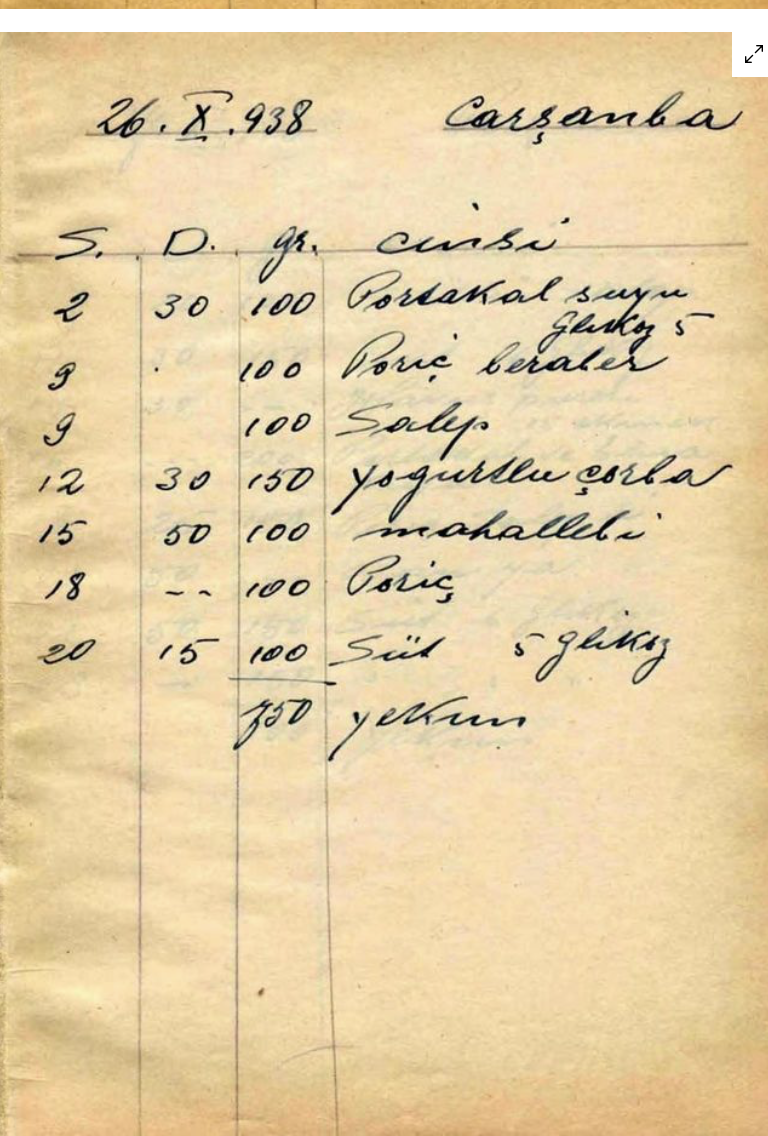 26.X.938 Carşanba
S. D. gr. cinsi
2 30 100 Portakal suyu
Glikoz 5
9 . 100 Poriç beraber
9 100 Salep
12 30 150 yogurtlu çorba
15 50 100 mahallebi
18 -- 100 Poriç
20 15 100 Süt 5 Glikoz
750 yekun